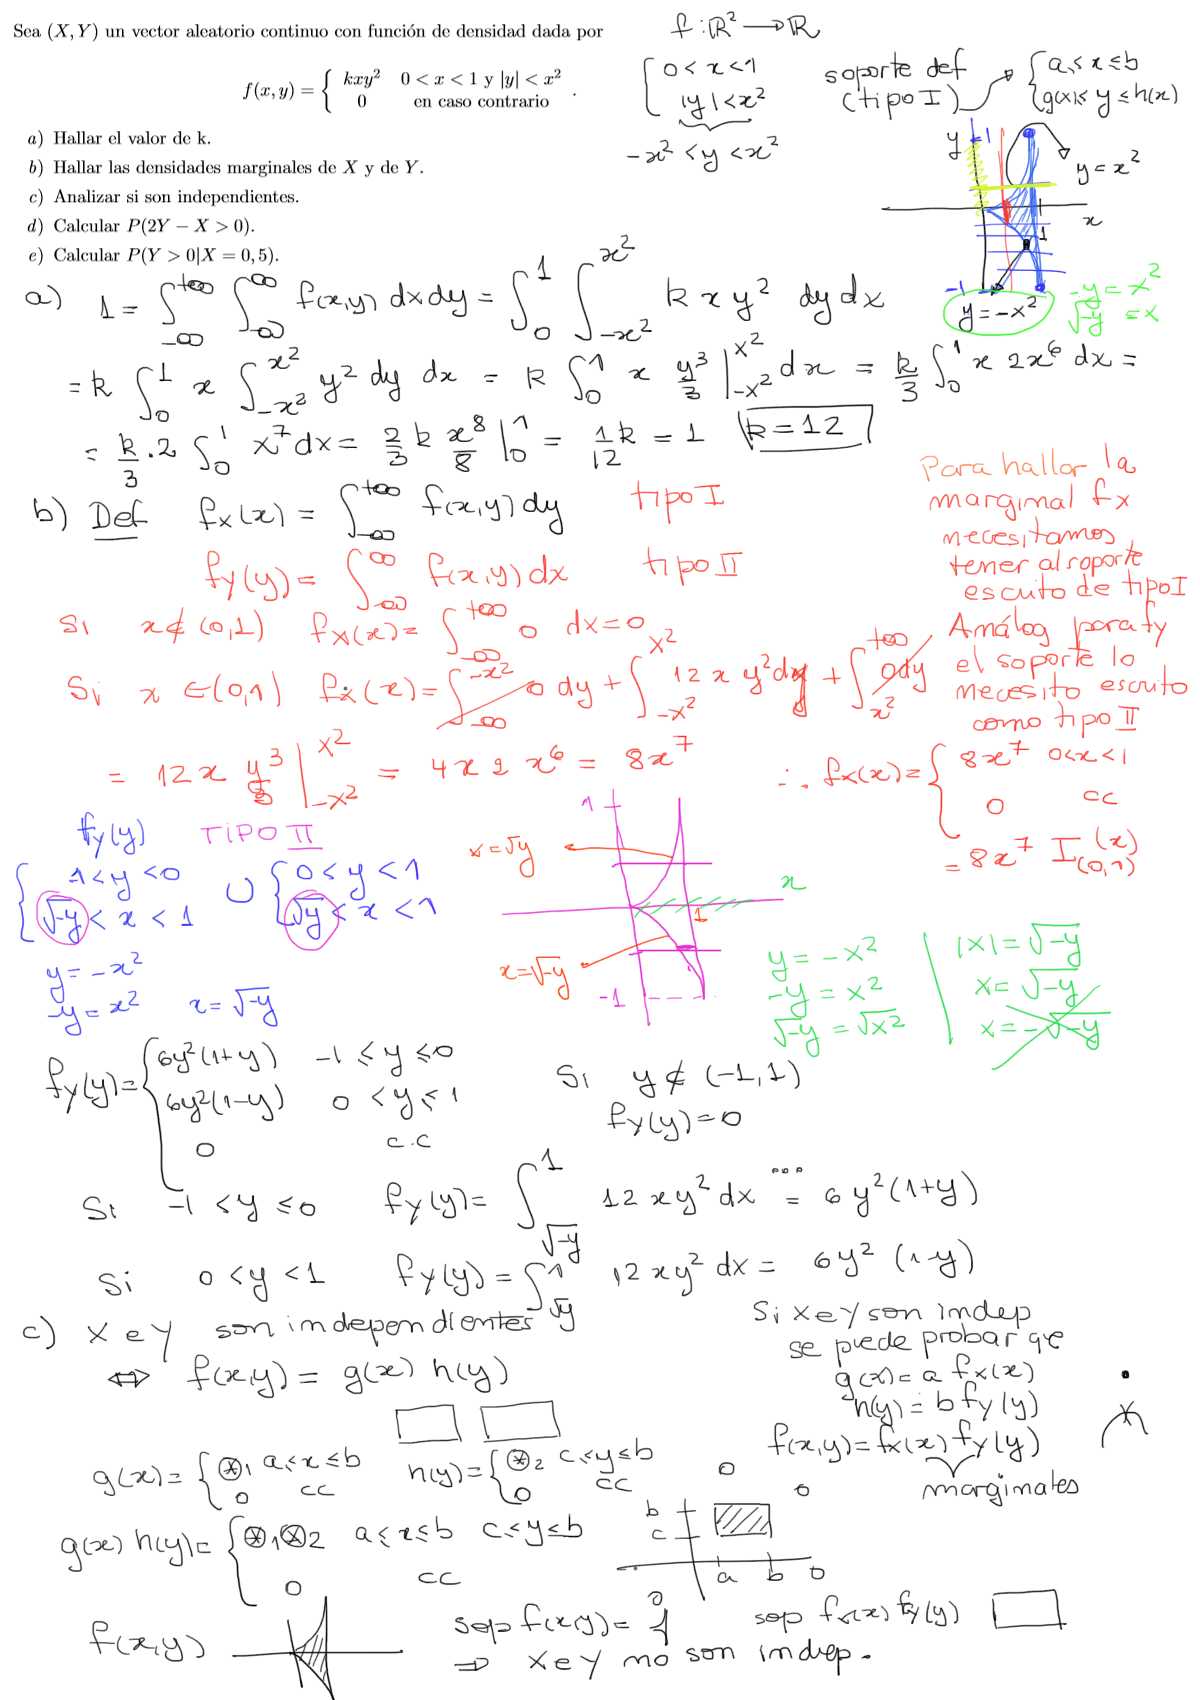 Sea (X, Y) un vector aleatorio continuo con función de densidad dada por
f(x, y) = { kxy² 0 < x < 1 y |y| < x²
0 en caso contrario .
a) Hallar el valor de k.
b) Hallar las densidades marginales de X y de Y.
c) Analizar si son independientes.
d) Calcular P(2Y − X > 0).
e) Calcular P(Y > 0|X = 0, 5).
f: ℝ² → ℝ
{ 0 < x < 1
|y| < x²
-x² < y < x²
soporte def
(tipo I)
{ a ≤ x ≤ b
g(x) ≤ y ≤ h(x)
y 1
y = x²
x
1
-1
y = -x²
-y = x²
√-y = x
a) 1 = ∫_{-∞}^{+∞} ∫_{-∞}^{∞} f(x,y) dx dy = ∫_0^1 ∫_{-x²}^{x²} k x y² dy dx
= k ∫_0^1 x ∫_{-x²}^{x²} y² dy dx = k ∫_0^1 x y³/3 |_{-x²}^{x²} dx = k/3 ∫_0^1 x 2x⁶ dx =
= k/3 . 2 ∫_0^1 x⁷ dx = 2/3 k x⁸/8 |_0^1 = 1/12 k = 1 k = 12
b) Def f_X(x) = ∫_{-∞}^{+∞} f(x,y) dy tipo I
f_Y(y) = ∫_{-∞}^{∞} f(x,y) dx tipo II
Para hallar la
marginal f_X
necesitamos
tener al soporte
escrito de tipo I
Análog para f_Y
el soporte lo
necesito escrito
como tipo II
Si x ∉ (0,1) f_X(x) = ∫_{-∞}^{+∞} 0 dx = 0
Si x ∈ (0,1) f_X(x) = ∫_{-∞}^{-x²} 0 dy + ∫_{-x²}^{x²} 12 x y² dy + ∫_{x²}^{+∞} 0 dy
= 12 x y³/3 |_{-x²}^{x²} = 4x 2 x⁶ = 8x⁷
∴ f_X(x) = { 8x⁷ 0<x<1
0 cc
= 8x⁷ I_{(0,1)}(x)
f_Y(y) TIPO II
{ -1 < y < 0
√-y < x < 1
∪ { 0 < y < 1
√y < x < 1
y = -x²
-y = x² x = √-y
1
x = √y
x
1
x = √-y
-1
y = -x²
-y = x²
√-y = √x²
|x| = √-y
x = √-y
x = -√-y
f_Y(y) = { 6y²(1+y) -1 ≤ y ≤ 0
6y²(1-y) 0 < y ≤ 1
0 c.c
Si y ∉ (-1,1)
f_Y(y) = 0
Si -1 < y ≤ 0 f_Y(y) = ∫_{√-y}^1 12 x y² dx ...= 6 y² (1+y)
Si 0 < y < 1 f_Y(y) = ∫_{√y}^1 12 x y² dx = 6y² (1-y)
c) X e Y son independientes
⇔ f(x,y) = g(x) h(y)
Si X e Y son indep
se puede probar qe
g(x) = a f_X(x)
h(y) = b f_Y(y)
f(x,y) = f_X(x) f_Y(y)
marginales
0
0
g(x) = { ⊛₁ a ≤ x ≤ b
0 cc
h(y) = { ⊛₂ c ≤ y ≤ b
0 cc
g(x) h(y) = { ⊛₁⊛₂ a ≤ x ≤ b c ≤ y ≤ b
0 cc
b
c
a b 0
f(x,y)
sop f(x,y) = sop f_X(x) f_Y(y)
⇒ X e Y no son indep.